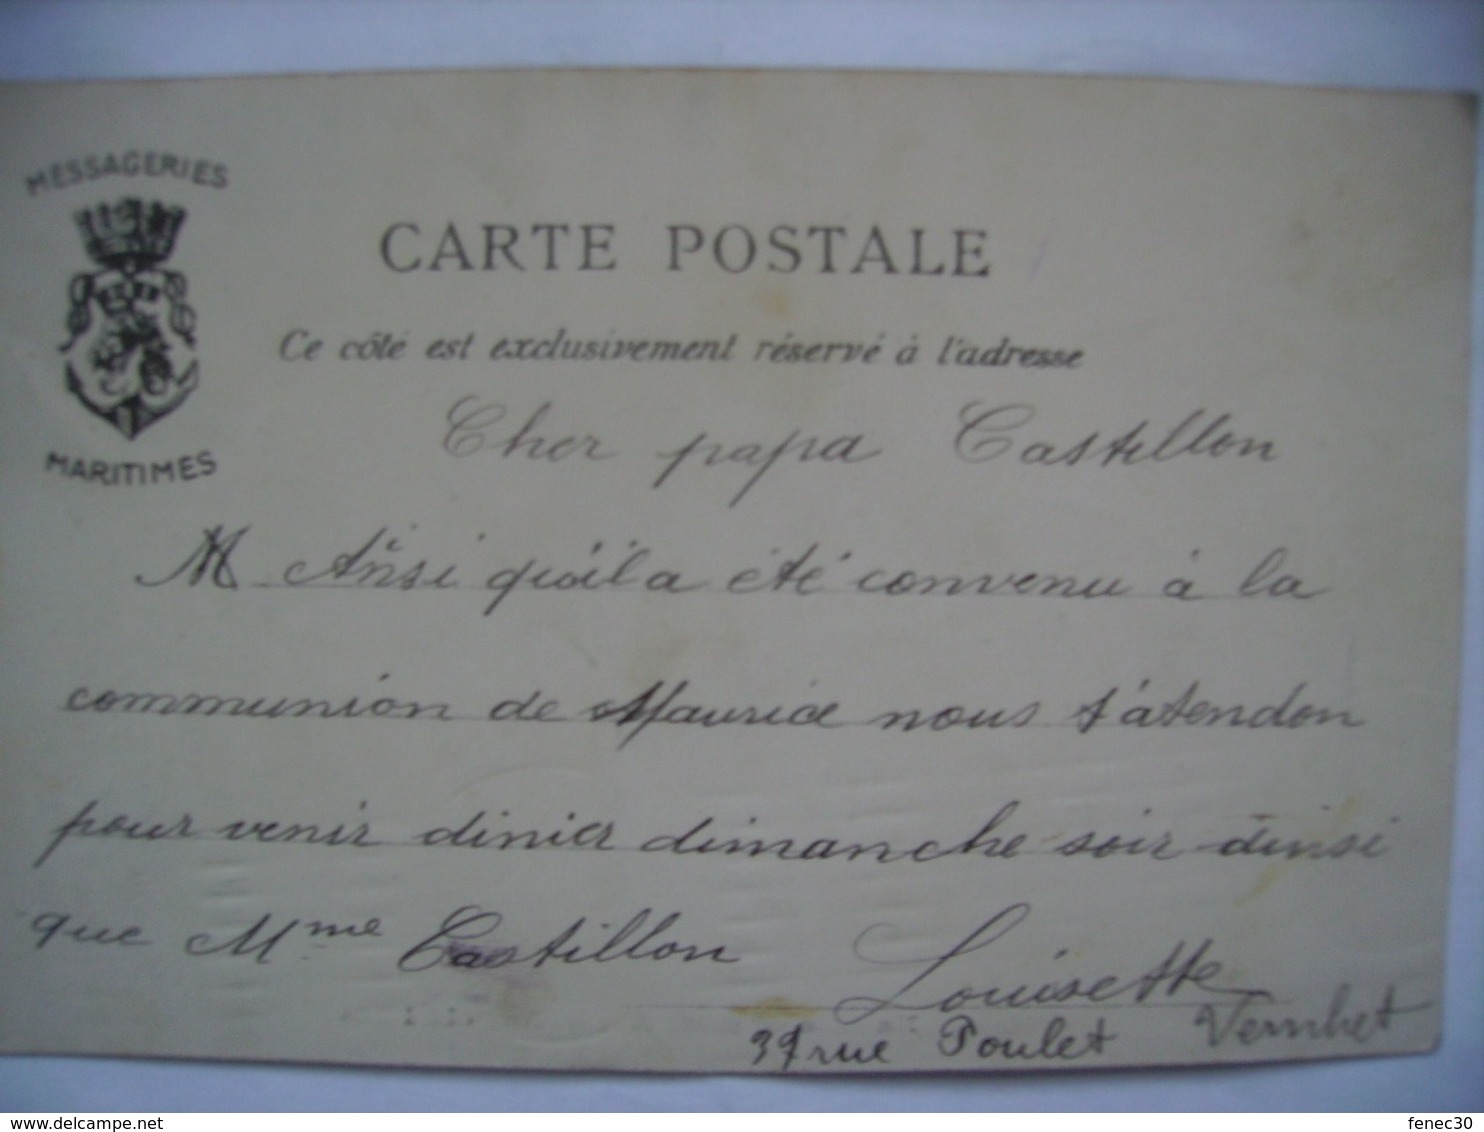 MESSAGERIES
MARITIMES
CARTE POSTALE
Ce côté est exclusivement réservé à l'adresse
Cher papa Castillon
M Ainsi qu'il a été convenu à la
communion de Maurice nous t'atendon
pour venir dinier dimanche soir ainsi
que Mme Castillon
Louisette
rue Poulet Vernhet
Delcampe.net
fenec30